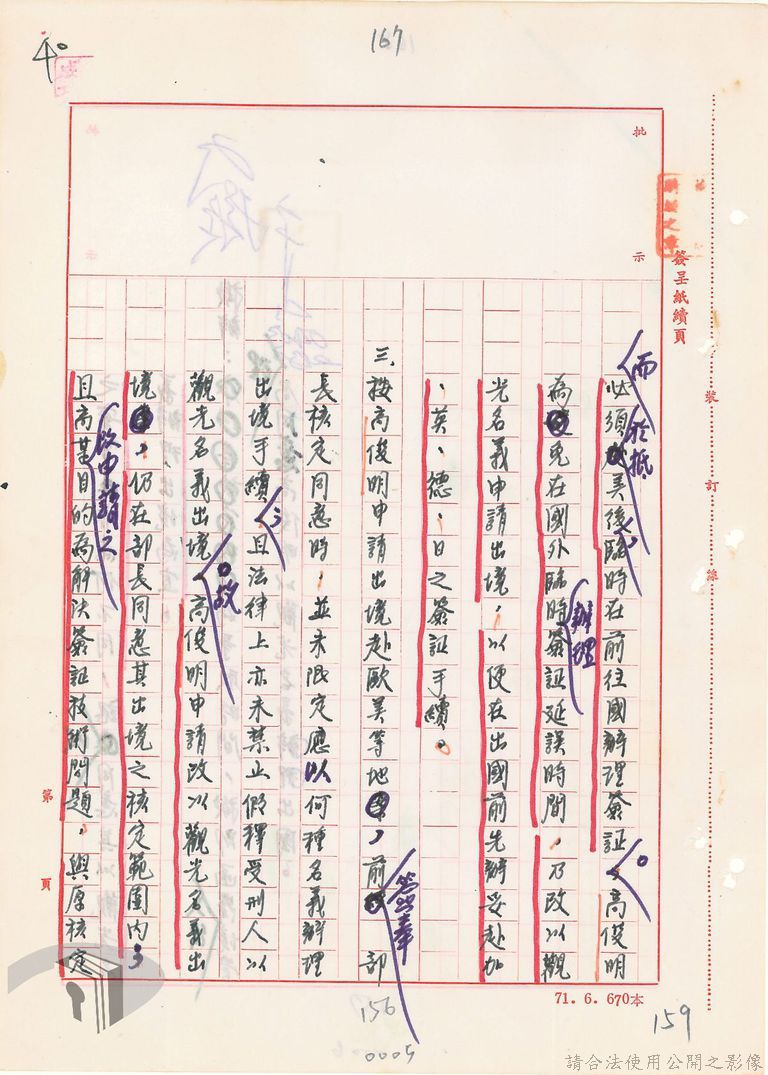 167
批示
簽呈紙續頁
裝訂線
而
必須美後臨時在前往國辦理簽証。高俊明
於抵
為免在國外臨時簽証延誤時間，乃改以觀
辦理
光名義申請出境，以便在出國前先辦妥赴加
、英、德、日之簽証手續。
三、按高俊明申請出境赴歐美等地，前 部
簽奉
長核定同意時，並未限定應以何種名義辦理
出境手續，且法律上亦未禁止假釋受刑人以
觀光名義出境。高俊明申請改以觀光名義出
故
境，仍在部長同意其出境之核定範圍內，
且高某目的為解決簽証技術問題，與原核定
改申請之
第頁
71. 6. 670本
156
159
0005
請合法使用公開之影像